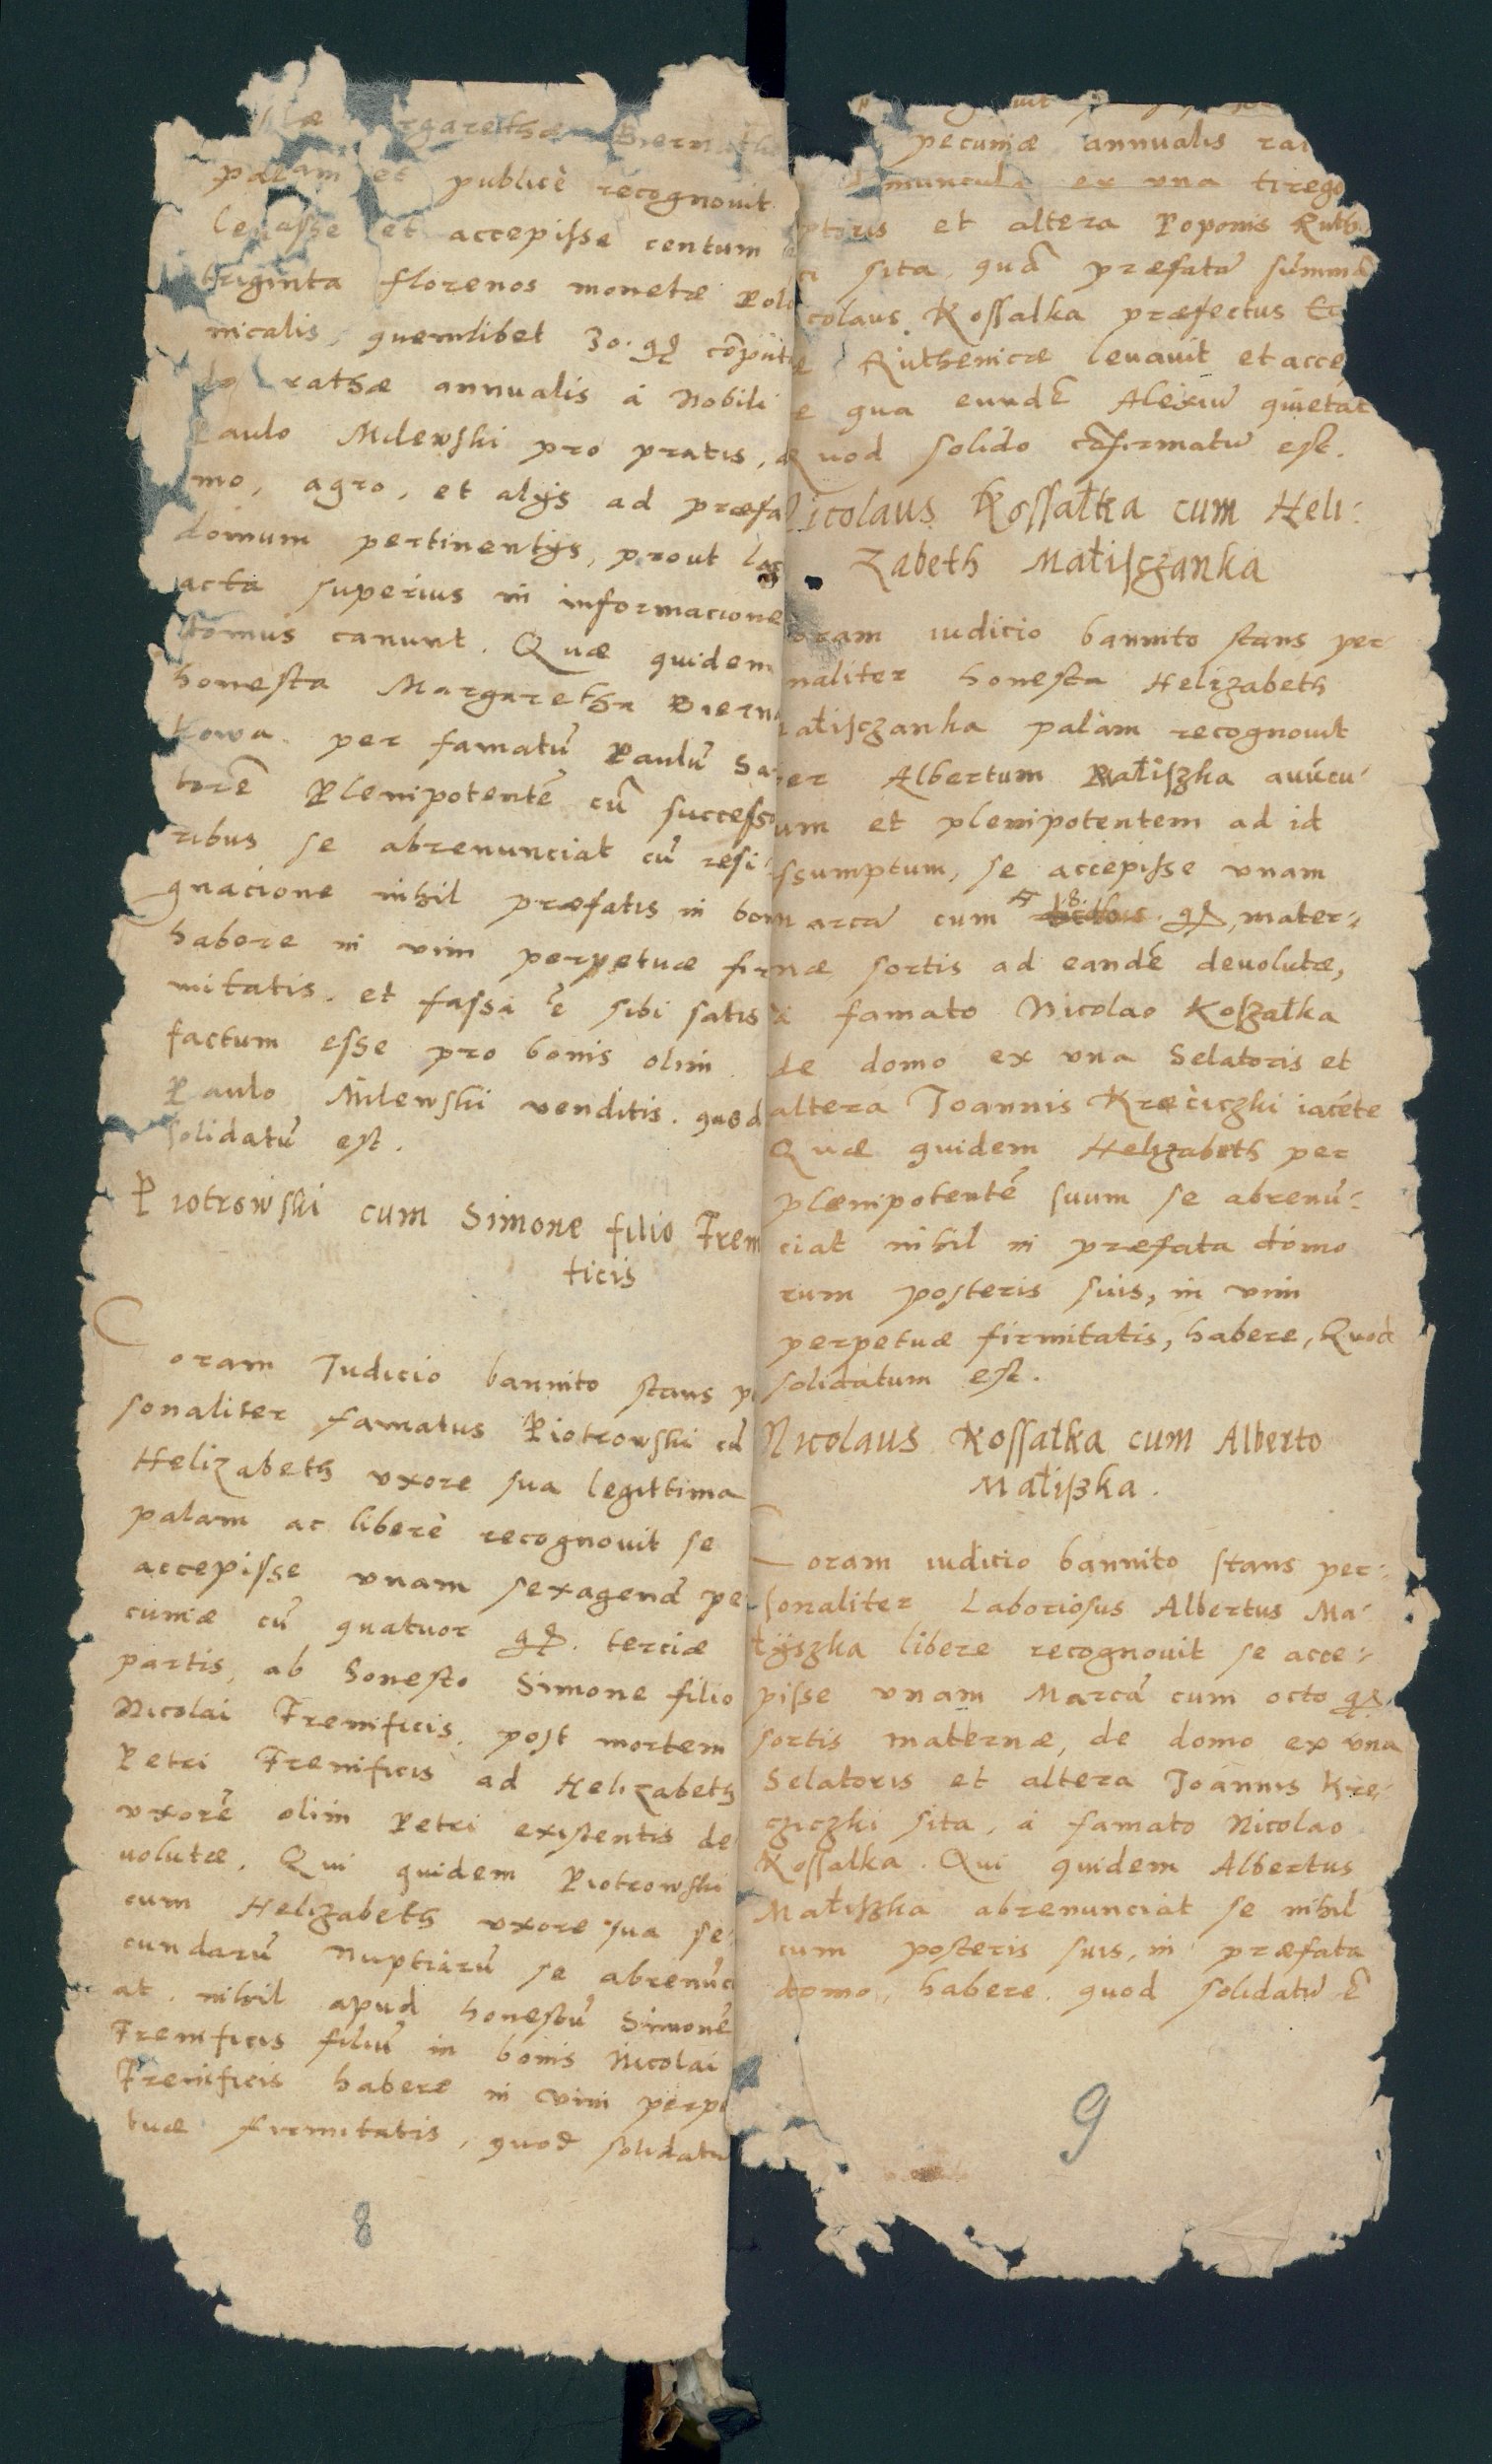 rgarethæ Biernath
palam et publicè recognouit
leuasse et accepisse centum
triginta florenos monetæ Polo
nicalis, quemlibet 30. gr. cōpūt
do rathæ annualis á Nobili
Paulo Milewski pro pratis,
mo, agro, et alijs ad præfa
domum pertinentijs, prout
acta superius in informacione
domus canunt. Quæ quidem
honesta Margaretha Biern
kowa per famatū Paulū Sa
torē Plenipotentē cū successo
ribus se abrenunciat cū resi
gnacione nihil præfatis in bon
habere in vim perpetuæ fir
mitatis. et fassa ē sibi satis
factum esse pro bonis olim
Paulo Milewski venditis. quod
solidatū est.
Piotrowski cum Simone filio Fren
ificis
Coram Iudicio bannito stans p
sonaliter famatus Piotrowski cū
Helizabeth vxore sua legittima
palam ac liberè recognouit se
accepisse vnam sexagenā pe
cuniæ cū quatuor gr. terciæ
partis, ab honesto Simone filio
Nicolai Frenificis, post mortem
Petri Frenificis ad Helizabeth
vxorē olim Petri existentis de
uolutæ. Qui quidem Piotrowski
cum Helizabeth vxore sua se
cundarū Nuptiarū se abrenūci
at. nihil apud honestū Simonē
Frenificis filiū in bonis Nicolai
Frenificis habere in vim perpe
tuæ firmitatis, quod solidatu
8
pecuniæ annualis
ex vna
ptoris et altera Poponis Ruth
sita, quā præfatā summā
colaus Kossalka præfectus
Ruthenicæ leuauit et acce
e qua eundē Alexiū quietat
Quod solido cōfirmatū est.
Nicolaus Kossałka cum Heli:
zabeth Małisczanka
oram iudicio bannito stans per
naliter honesta Helizabeth
ałisczanka palàm recognouit
per Albertum Małiszka auúcu:
um et plenipotentem ad id
ssumptum, se accepisse vnam
marcā cum 18. gr, mater:
næ sortis ad eandē deuolutæ,
à famato Nicolao Koszałka
de domo ex vna Selatoris et
altera Joannis Kreciczki iacēte
Quæ quidem Helizabeth per
plænipotentē suum se abrenū:
ciat nihil in præfata domo
cum posteris suis, in vim
perpetuæ firmitatis, habere, Quod
solidatum est.
Nicolaus Kossałka cum Alberto
Małiszka.
Coram iudicio bannito stans per:
sonaliter Laboriosus Albertus Ma:
łyszka libere recognouit se acce:
pisse vnam Marcā cum octo gr.
sortis maternæ, de domo ex vna
Selatoris et altera Joannis Kre:
cziczki sita, á famato Nicolao
Kossalka. Qui quidem Albertus
Małiszka abrenunciat se nihil
cum posteris suis, in præfata
domo, habere. quod solidatū ē
9